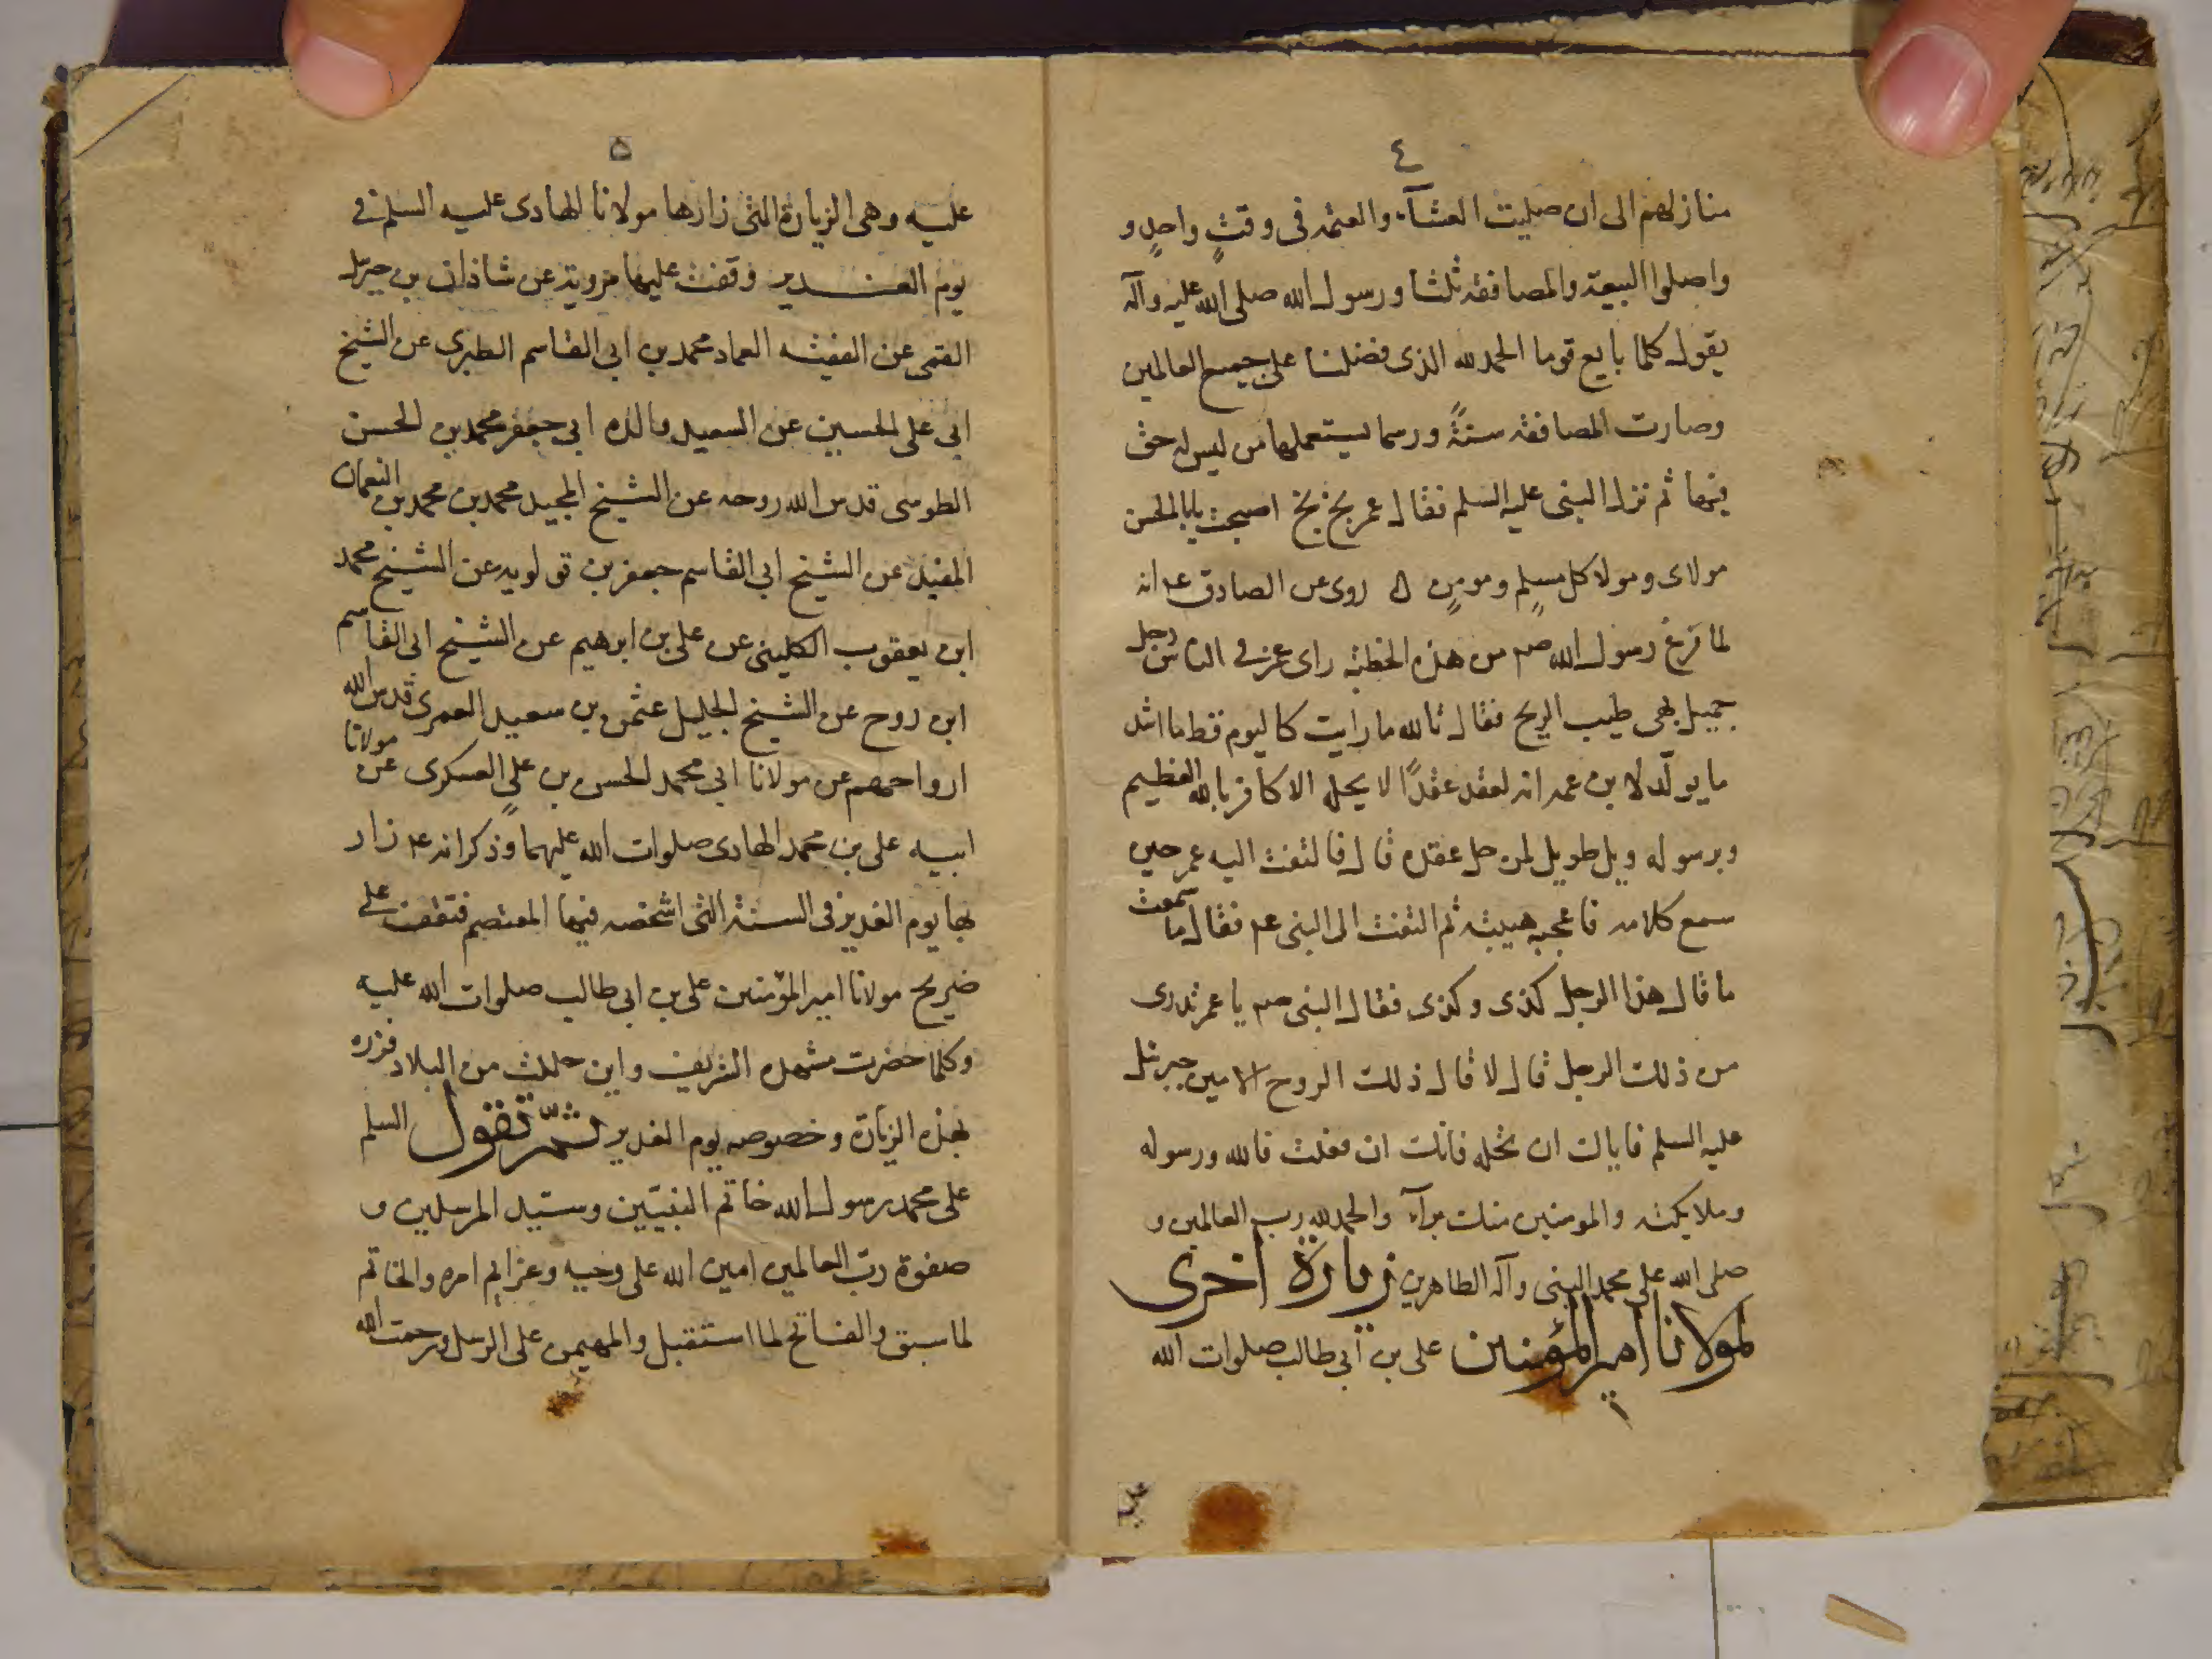 ٤
منازلهم الى ان صليت العشآء والعتمه فى وقتٍ واحدٍ و
واصلوا البيعة والمصافقه ثلثا ورسول الله صلى الله عليه وآله
يقول كلما بايع قوما الحمد لله الذى فضلنا على جميع العالمين
وصارت المصافقه سنةً ورسما يستعملها من ليس له حق
فيها ثم نزل النبى عليه السلم فقال عمر بخ بخ اصبحت يابا الحسن
مولاى ومولا كل مسلمٍ ومومنٍ روى عن الصادق ع انه
لما فرغ رسول الله صم من هذه الخطبة راى عمر فى الناس رجل
جميل بهى طيب الريح فقال تالله ما رايت كاليوم قط ما اشد
ما يولّد لابن عمه انه لعقد عقدًا لا يحله الا كافر بالله العظيم
وبرسوله ويل طويل لمن حل عقده قال فالتفت اليه عمر حين
سمع كلامه فاعجبه هيبته ثم التفت الى النبى عم فقال ما سمعت
ما قال هذا الرجل كذى وكذى فقال النبى صم يا عمر تدرى
من ذلك الرجل قال لا قال ذلك الروح الامين جبرئل
عليه السلم فاياك ان تحله فانك ان فعلت فالله ورسوله
وملايكته والمومنين منك برآء والحمد لله رب العالمين و
صلى الله على محمد النبى وآله الطاهرين زيارة اخرى
لمولانا امير المؤمنين على بن ابى طالب صلوات الله
عليه
٥
عليه وهى الزيارة التى زارها مولانا الهادى عليه السلم فى
يوم الغدير وقفت عليها مروية عن شاذان بن جبرئل
القمى عن الفقيه العماد محمد بن ابى القاسم الطبرى عن الشيخ
ابى على الحسين عن السعيد والده ابى جعفر محمد بن الحسن
الطوسى قدس الله روحه عن الشيخ المجيد محمد بن محمد بن النعمان
المفيد عن الشيخ ابى القاسم جعفر بن قولويه عن الشيخ محمد
ابن يعقوب الكلينى عن على بن ابرهيم عن الشيخ ابى القاسم
ابن روح عن الشيخ الجليل عثمن بن سعيد العمرى قدس الله
ارواحهم عن مولانا ابى محمد الحسن بن علىٍ العسكرى عن مولانا
ابيه على بن محمد الهادى صلوات الله عليهما وذكر انه عم زار
بها يوم الغدير فى السنة التى اشخصه فيها المعتصم فتقف على
ضريح مولانا امير المؤمنين على بن ابى طالب صلوات الله عليه
وكلما حضرت مشهده الشريف واين حللت من البلاد فزره
بهذه الزيارة وخصوصه يوم الغدير ثمّ تقول السلم
على محمد رسول الله خاتم النبيّين وسيّد المرسلين و
صفوة ربّ العالمين امين الله على وحيه وعزايم امره والخاتم
لما سبق والفاتح لما استقبل والمهيمن على الرسل ورحمت الله